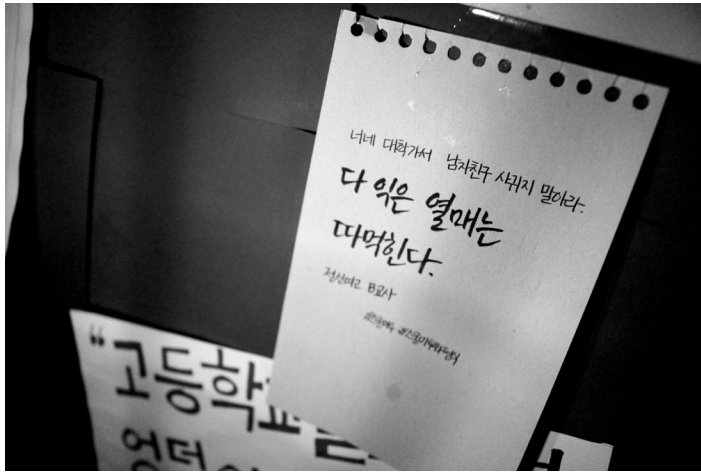 너네 대학가서 남자친구 사귀지 말아라.
다 익은 열매는
따먹힌다.
정신여고 B교사
"고등학교